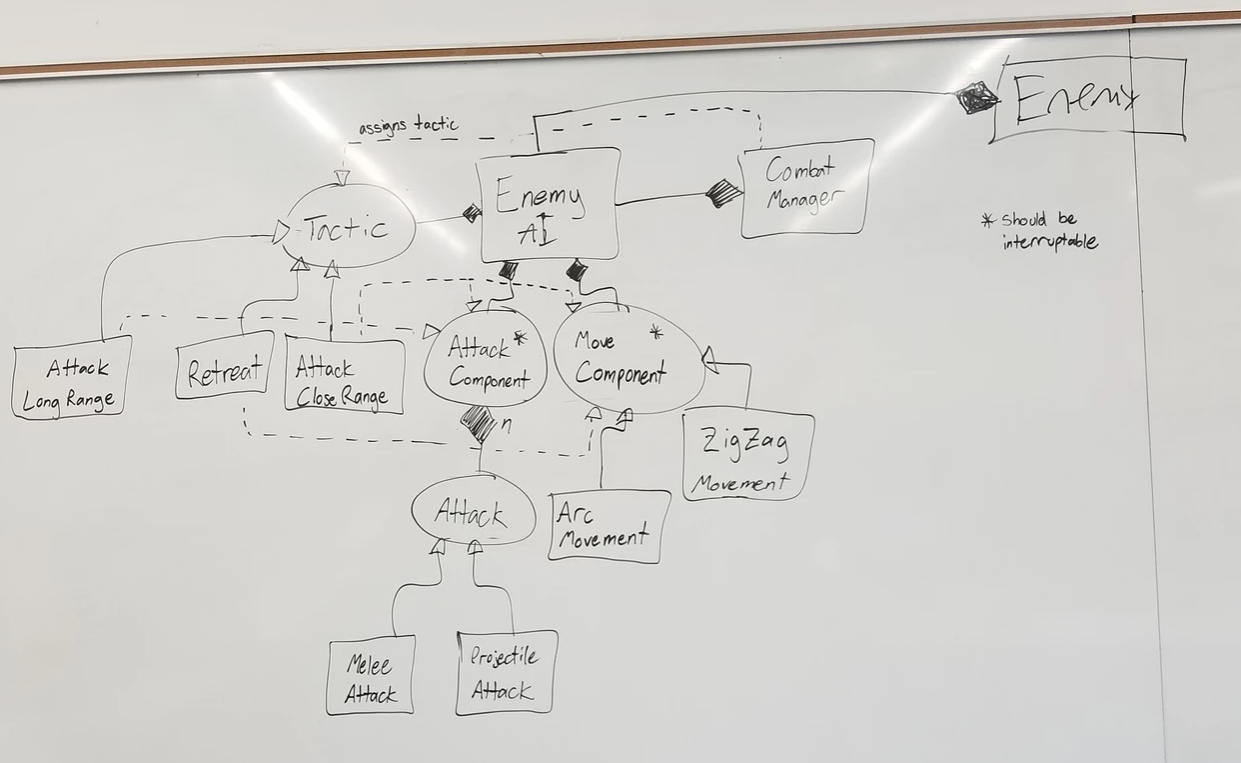 Enemy
assigns tactic
Combat
Manager
Enemy
AI
Tactic
* should be
interruptable
Attack
Long Range
Retreat
Attack
Close Range
Attack*
Component
Move *
Component
n
ZigZag
Movement
Attack
Arc
Movement
Melee
Attack
Projectile
Attack